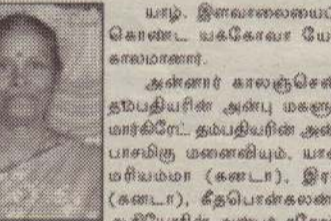 யாழ். இளவாலையைப்
கொண்ட யக்கோவா யே
காலமானார்.
அன்னார் காலஞ்சென்
தம்பதியரின் அன்பு மகளு
மார்கிரேட் தம்பதியரின் அன்
பாசமிகு மனைவியும், யாக
மரியம்மா (கனடா), இர
(கனடா), கீதபொன்கலன்